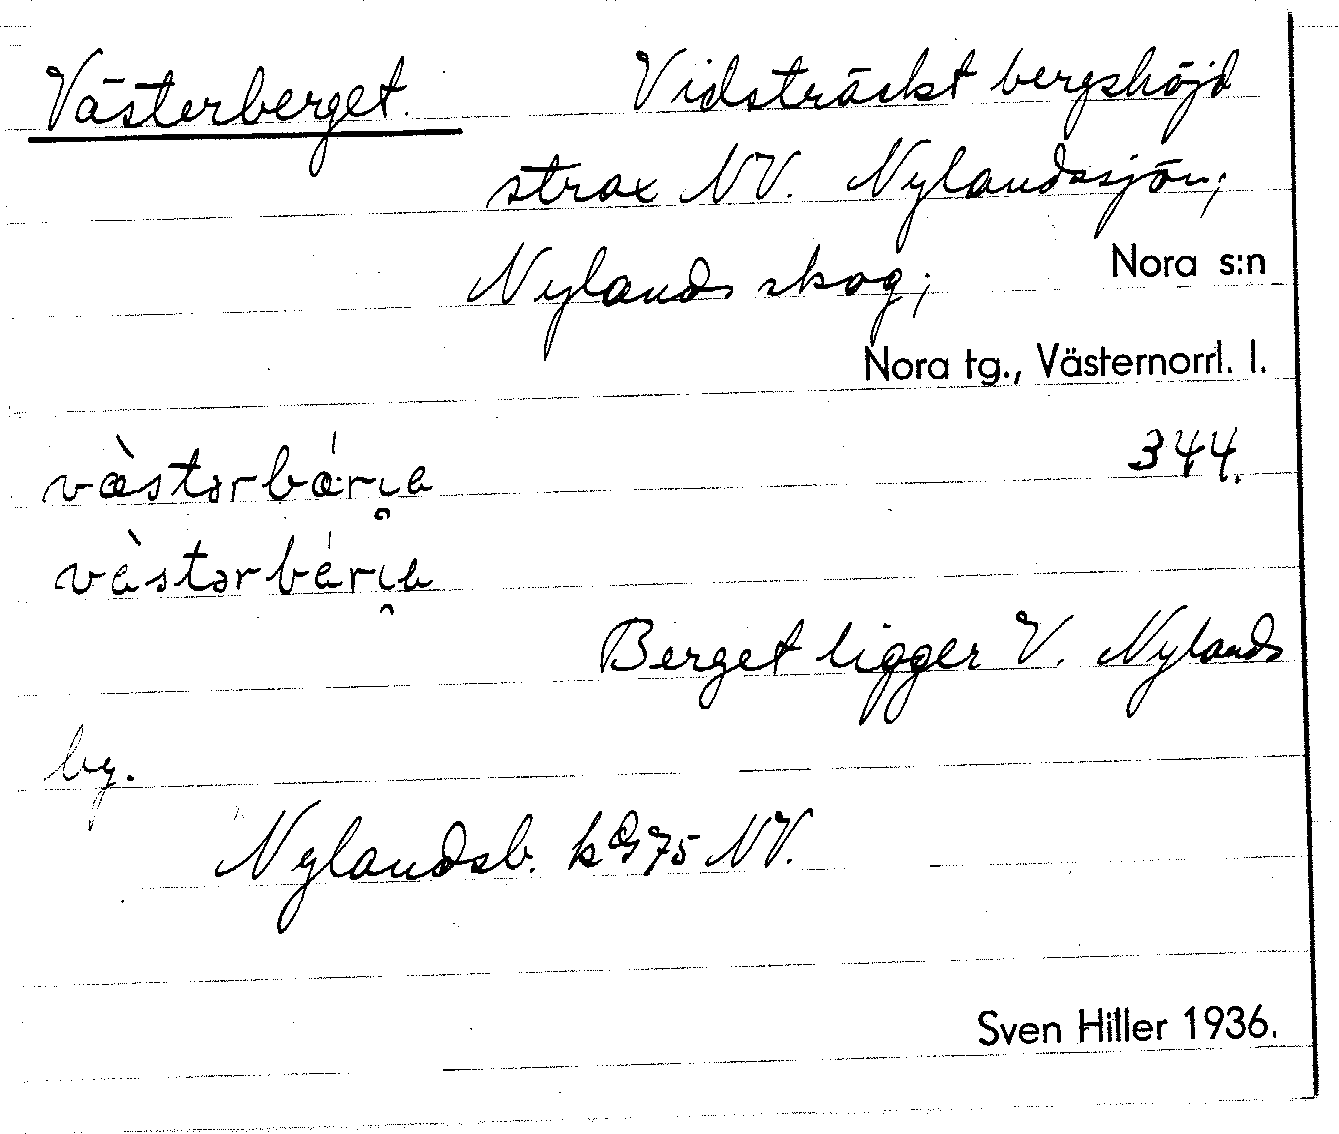 Västerberget. Vidsträckt bergshöjd
strax NV. Nylandssjön;
Nylands skog; Nora s:n
Nora tg., Västernorrl. l.
344.
væ̀stərbǽrıe
vèstərbérıe
Berget ligger V. Nylands
by.
Nylandsb. NV.
Sven Hiller 1936.